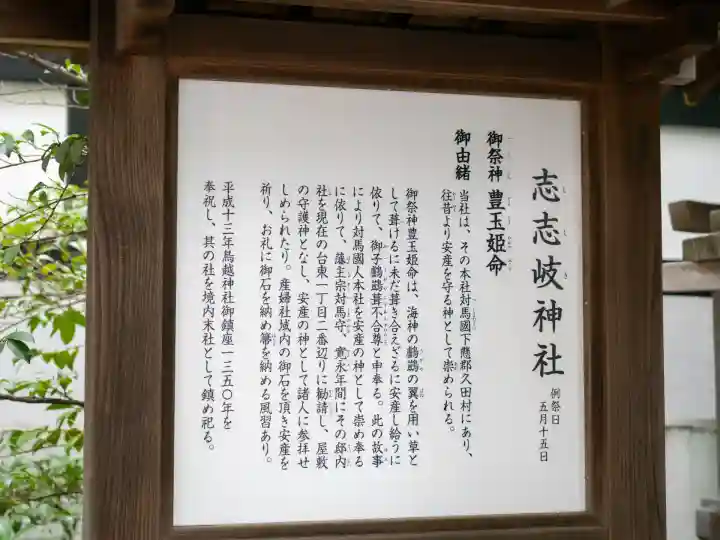 志志岐神社
例祭日
五月十五日
御祭神 豊玉姫命
御由緒
当社は、その本社対馬國下懸郡久田村にあり、
往昔より安産を守る神として崇められる。
御祭神豊玉姫命は、海神の鸕鶿の翼を用い草と
して葺けるに未だ葺き合えざるに安産し給うに
依りて、御子鸕鶿葺不合尊と申奉る。此の故事
により対馬國人本社を安産の神として崇め奉る
に依りて、藩主宗対馬守、寛永年間にその邸内
社を現在の台東一丁目二番辺りに勧請し、屋敷
の守護神となし、安産の神として諸人に参拝せ
しめられたり。産婦社域内の御石を頂き安産を
祈り、お礼に御石を納め箒を納める風習あり。
平成十三年鳥越神社御鎮座一三五〇年を
奉祝し、其の社を境内末社として鎮め祀る。